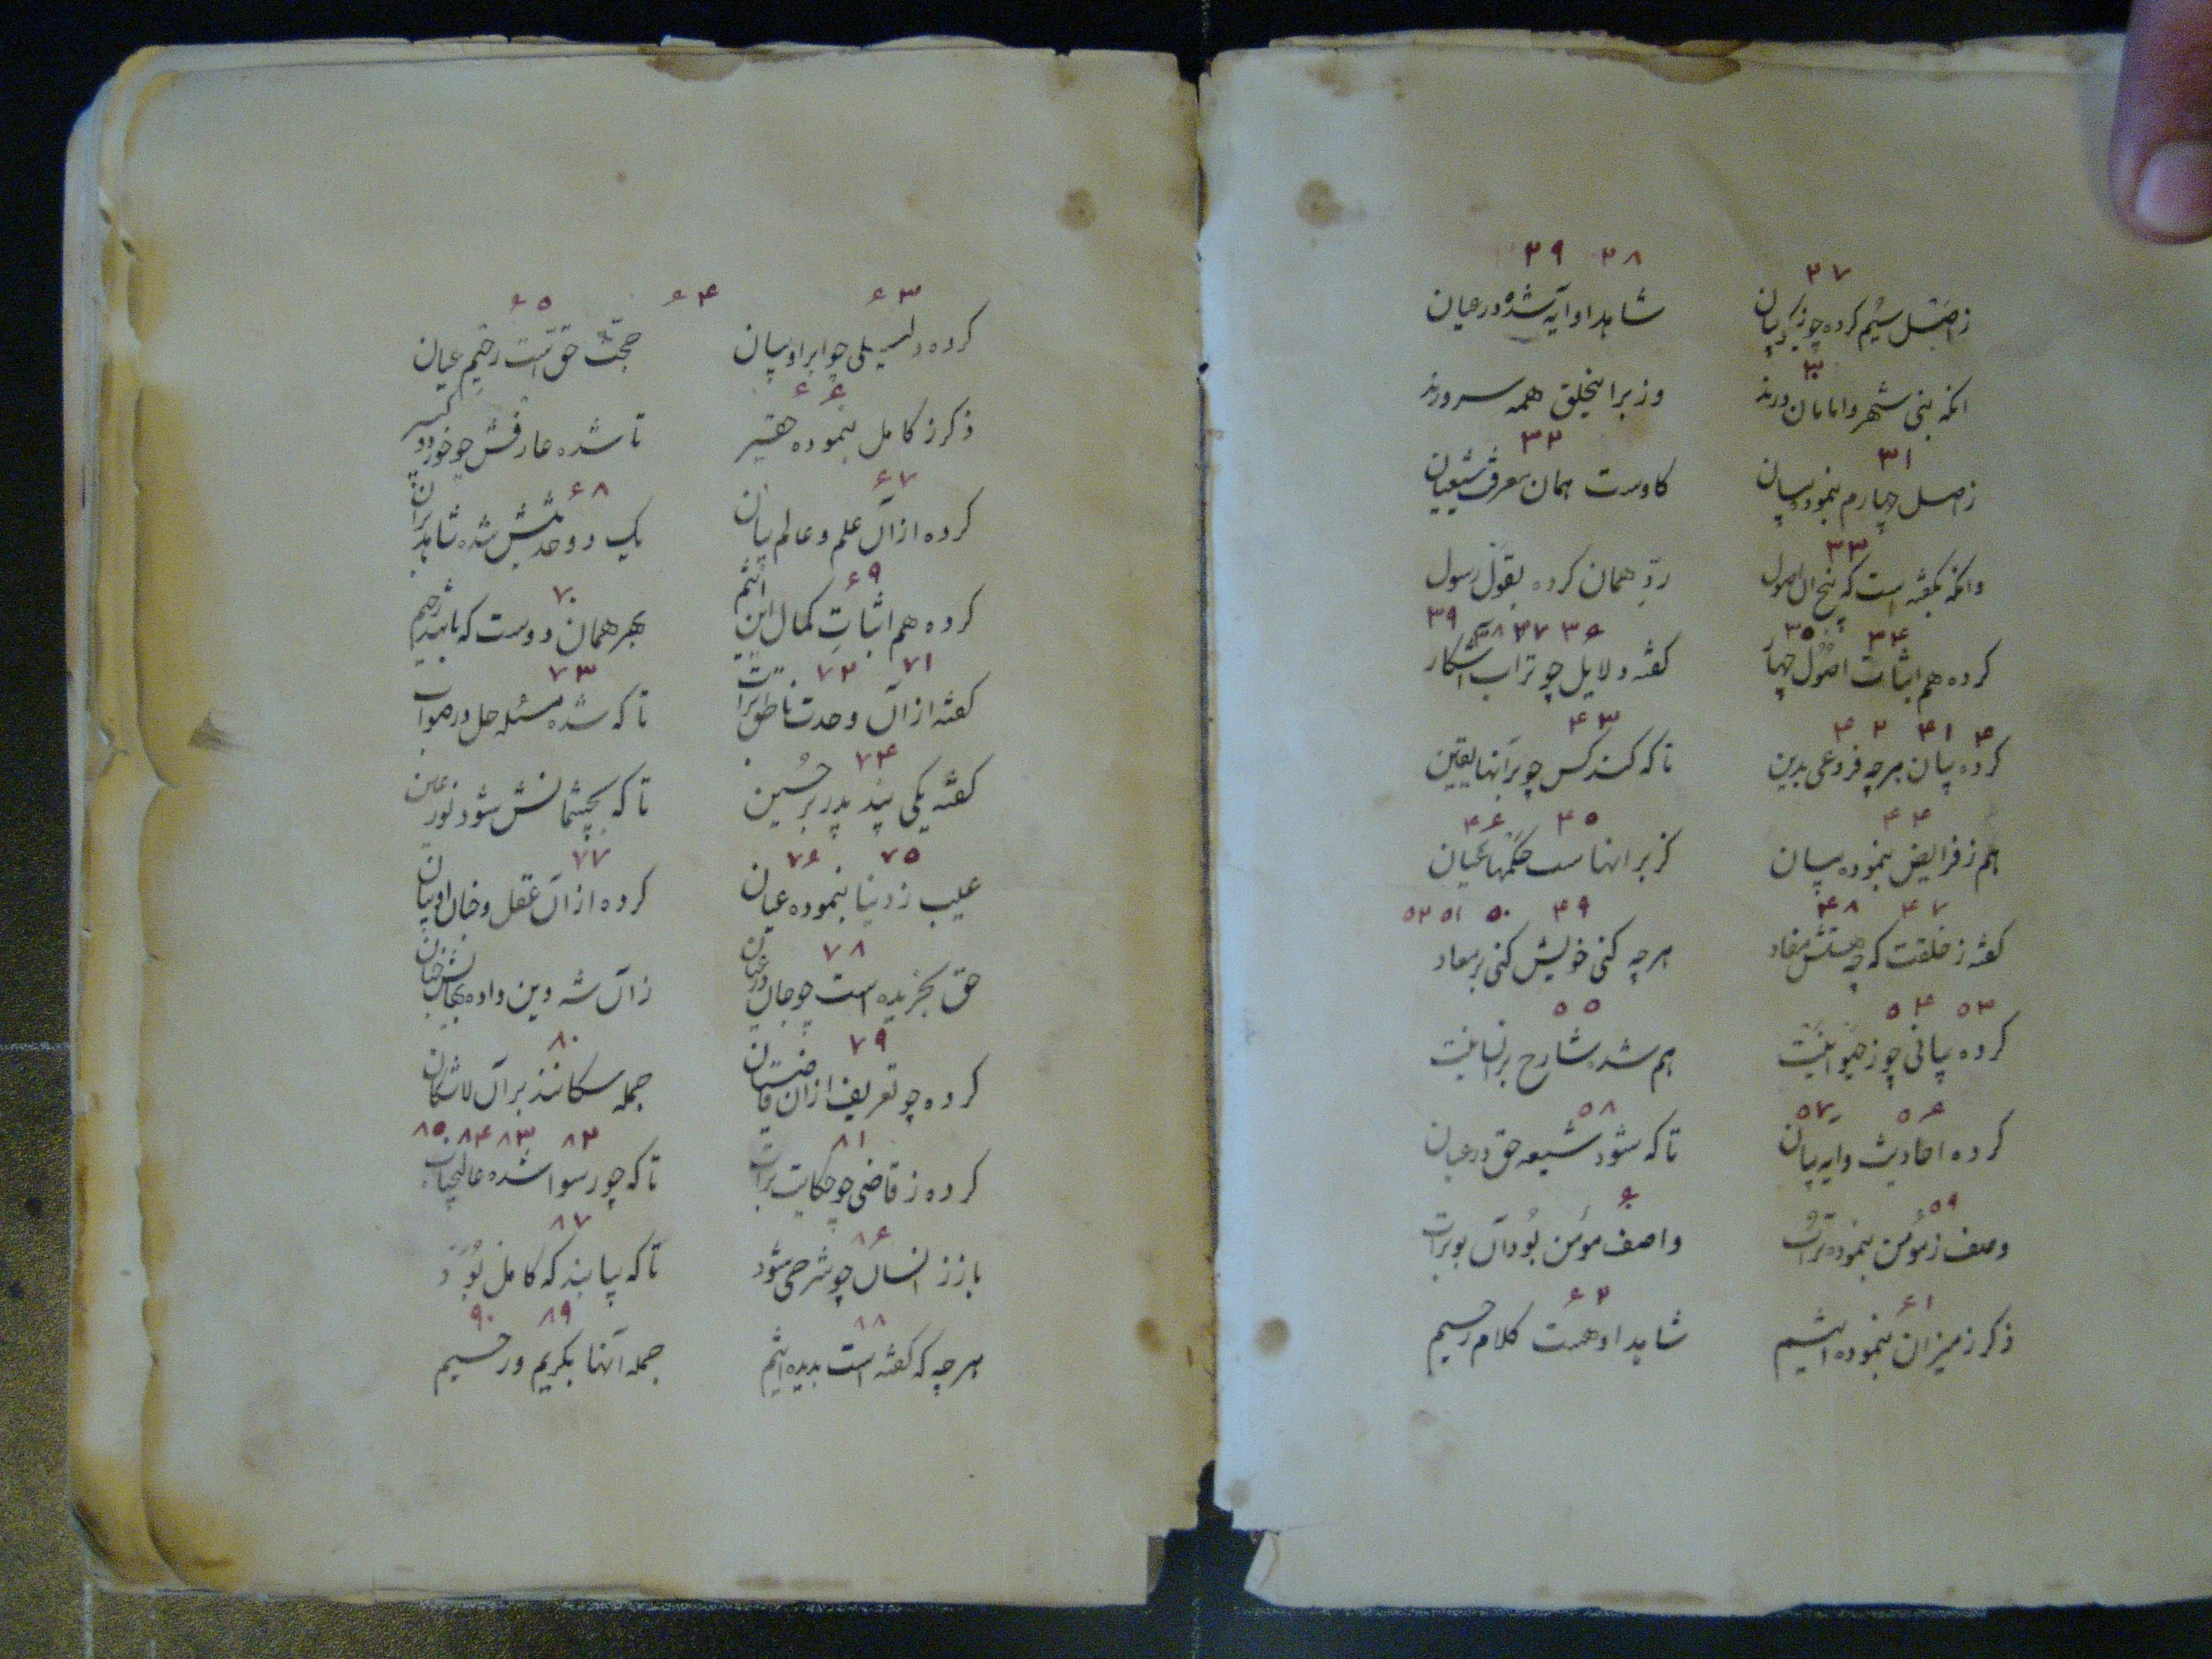 ۲۷ ۲۸ ۲۹
ز اصل سیُم کرده چو زیر بیان شاهد او آیه شده در عیان
۳۰
انکه بنی شهر و امامان درند وز برا ینخلق همه سرورند
۳۱ ۳۲
ز اصل چهارم بنموده بیان کاوست همان معرف شیعیان
۳۳
وانکه بگفته است که پنج ال اصول ردّ همان کرده بقول رسول
۳۴ ۳۵ ۳۶ ۳۷ ۳۸ ۳۹
کرده هم اثبات اصول چهار گفته دلایل چو تراب آشکار
۴۰ ۴۱ ۴۲ ۴۳
کرده بیان هرچه فروعی بدین تا که کند کس چو بر آنها یقین
۴۴ ۴۵ ۴۶
هم ز فرایض بنموده بیان کز بر انهاست حکمها عیان
۴۷ ۴۸ ۴۹ ۵۰ ۵۱ ۵۲
گفته ز خلقت که چه هستش مفاد هرچه کنی خویش کنی بر معاد
۵۳ ۵۴ ۵۵
کرده بیانی چو ز حیوانیّت هم شده شارح بر انسانیت
۵۶ ۵۷ ۵۸
کرده احادیث و آیه بیان تا که شود شیعه حق در عیان
۵۹ ۶۰
وصف ز مؤمن بنموده تراب واصف مؤمن بُود آن بوتراب
۶۱ ۶۲
ذکر ز میزان بنموده اثیم شاهد او هست کلام رحیم
۶۳ ۶۴ ۶۵
کرده دلیلی چو ابر او بیان حجت حقست رحیم عیان
۶۶
ذکر ز کامل بنموده حقیر تا شده عارفش چو خورد و کبیر
۶۷ ۶۸
کرده از آن علم و عالم بیان یک دو حدیثش شده شاهد بر آن
۶۹ ۷۰
کرده هم اثبات کمال این اثیم بهر همان دوست که باشد رحیم
۷۱ ۷۲ ۷۳
گفته از آن وحدت ناطق تراب تا که شده مسئله حل در صواب
۷۴
گفته یکی پند پدر بر حُسین تا که بچشمانش شود نور عین
۷۵ ۷۶ ۷۷
عیب ز دنیا بنموده عیان کرده از آن عقل و خان او بیان
۷۸
حق بخریده است چو جان در عیان زان شه دین داده بجایش جنان
۷۹ ۸۰
کرده چو تعریف از آن قاضیان جمله سکانند بر آن لاشکان
۸۱ ۸۲ ۸۳ ۸۴ ۸۵
کرده ز قاضی چو حکایت تراب تا که چو رسوا شده عالیجناب
۸۶ ۸۷
باز ز انسان چو شرحی شود تا که بیابند که کامل بُوَد
۸۸ ۸۹ ۹۰
هرچه که گفته است بدیده اثیم جمله آنها بکریم و رحیم